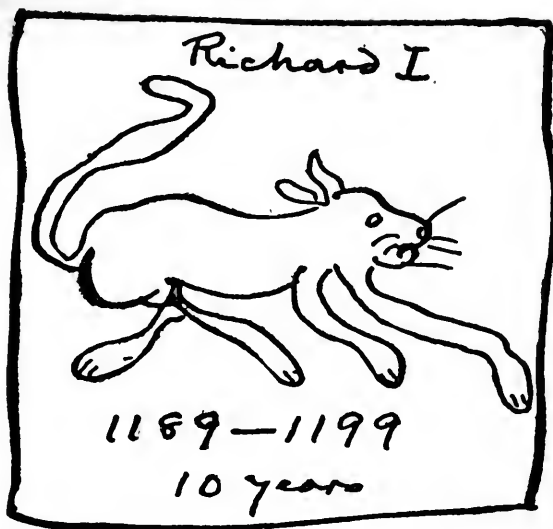 Richard I.
1189—1199
10 years